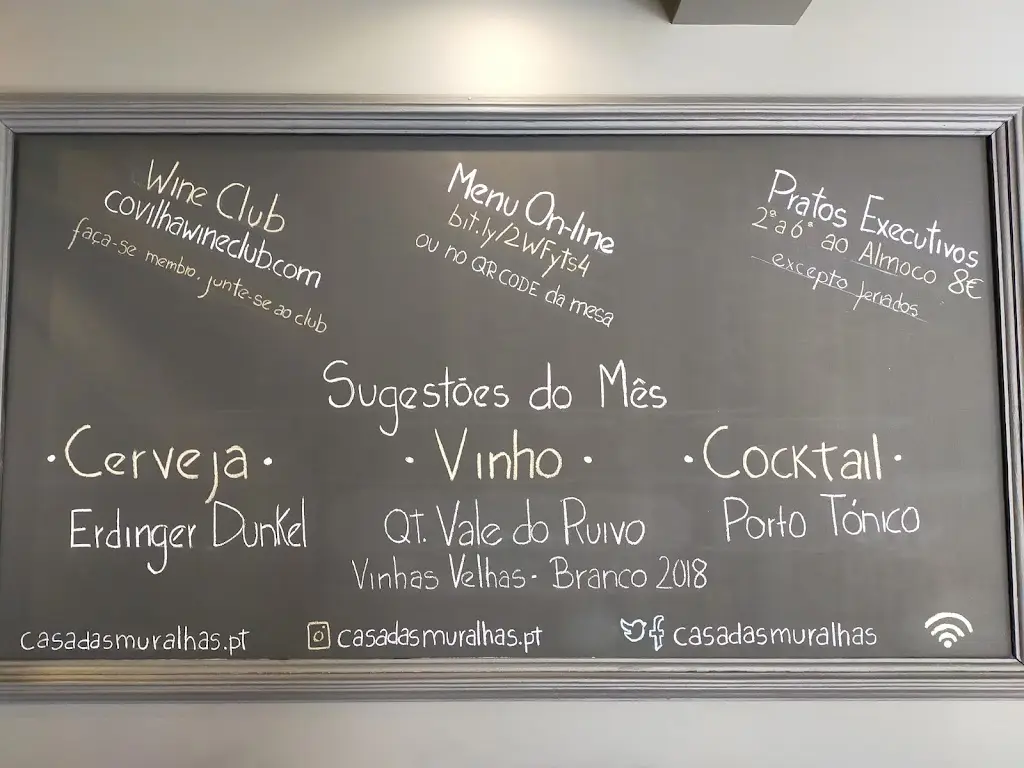 Wine Club
covilhawineclub.com
faça-se membro, junte-se ao club
Menu On-line
bit.ly/2WFyts4
ou no QR CODE da mesa
Pratos Executivos
2ª a 6ª ao Almoco 8€
excepto feriados
Sugestões do Mês
• Cerveja •
Erdinger Dunkel
• Vinho •
QT. Vale do Ruivo
Vinhas Velhas - Branco 2018
• Cocktail •
Porto Tónico
casadasmuralhas.pt
casadasmuralhas.pt
casadasmuralhas